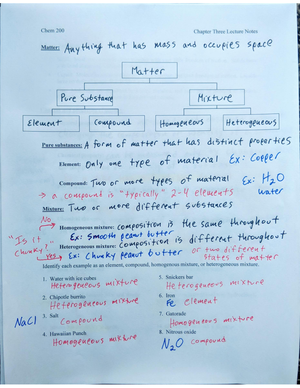 Chem 200 Chapter Three Lecture Notes
Matter: Anything that has mass and occupies space
Matter
Pure Substance Mixture
Element Compound Homogeneous Heterogeneous
Pure substances: A form of matter that has distinct properties
Element: Only one type of material Ex: Copper
Compound: Two or more types of material Ex: H2O
water
→ a compound is "typically" 2-4 elements
Mixture: Two or more different substances
No
Homogeneous mixture: composition is the same throughout
"Is it chunky?"
Ex: Smooth peanut butter
Heterogeneous mixture: composition is different throughout
yes Ex: Chunky peanut butter or two different
states of matter
Identify each example as an element, compound, homogeneous mixture, or heterogeneous mixture.
1. Water with ice cubes
Heterogeneous mixture
2. Chipotle burrito
Heterogeneous mixture
3. Salt
NaCl Compound
4. Hawaiian Punch
Homogeneous mixture
5. Snickers bar
Heterogeneous mixture
6. Iron
Fe element
7. Gatorade
Homogeneous mixture
8. Nitrous oxide
N2O compound